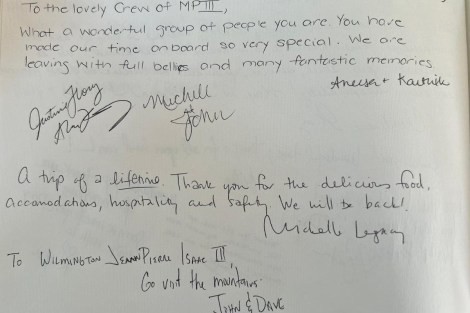 To the lovely Crew of MP III,
What a wonderful group of people you are. You have
made our time onboard so very special. We are
leaving with full bellies and many fantastic memories
Michell
& John
A trip of a lifetime. Thank you for the delicious food,
accomodations, hospitality and safety. We will be back!
Michelle
To Wilmington Isaac III,
Go visit the mountains.
John & Dave